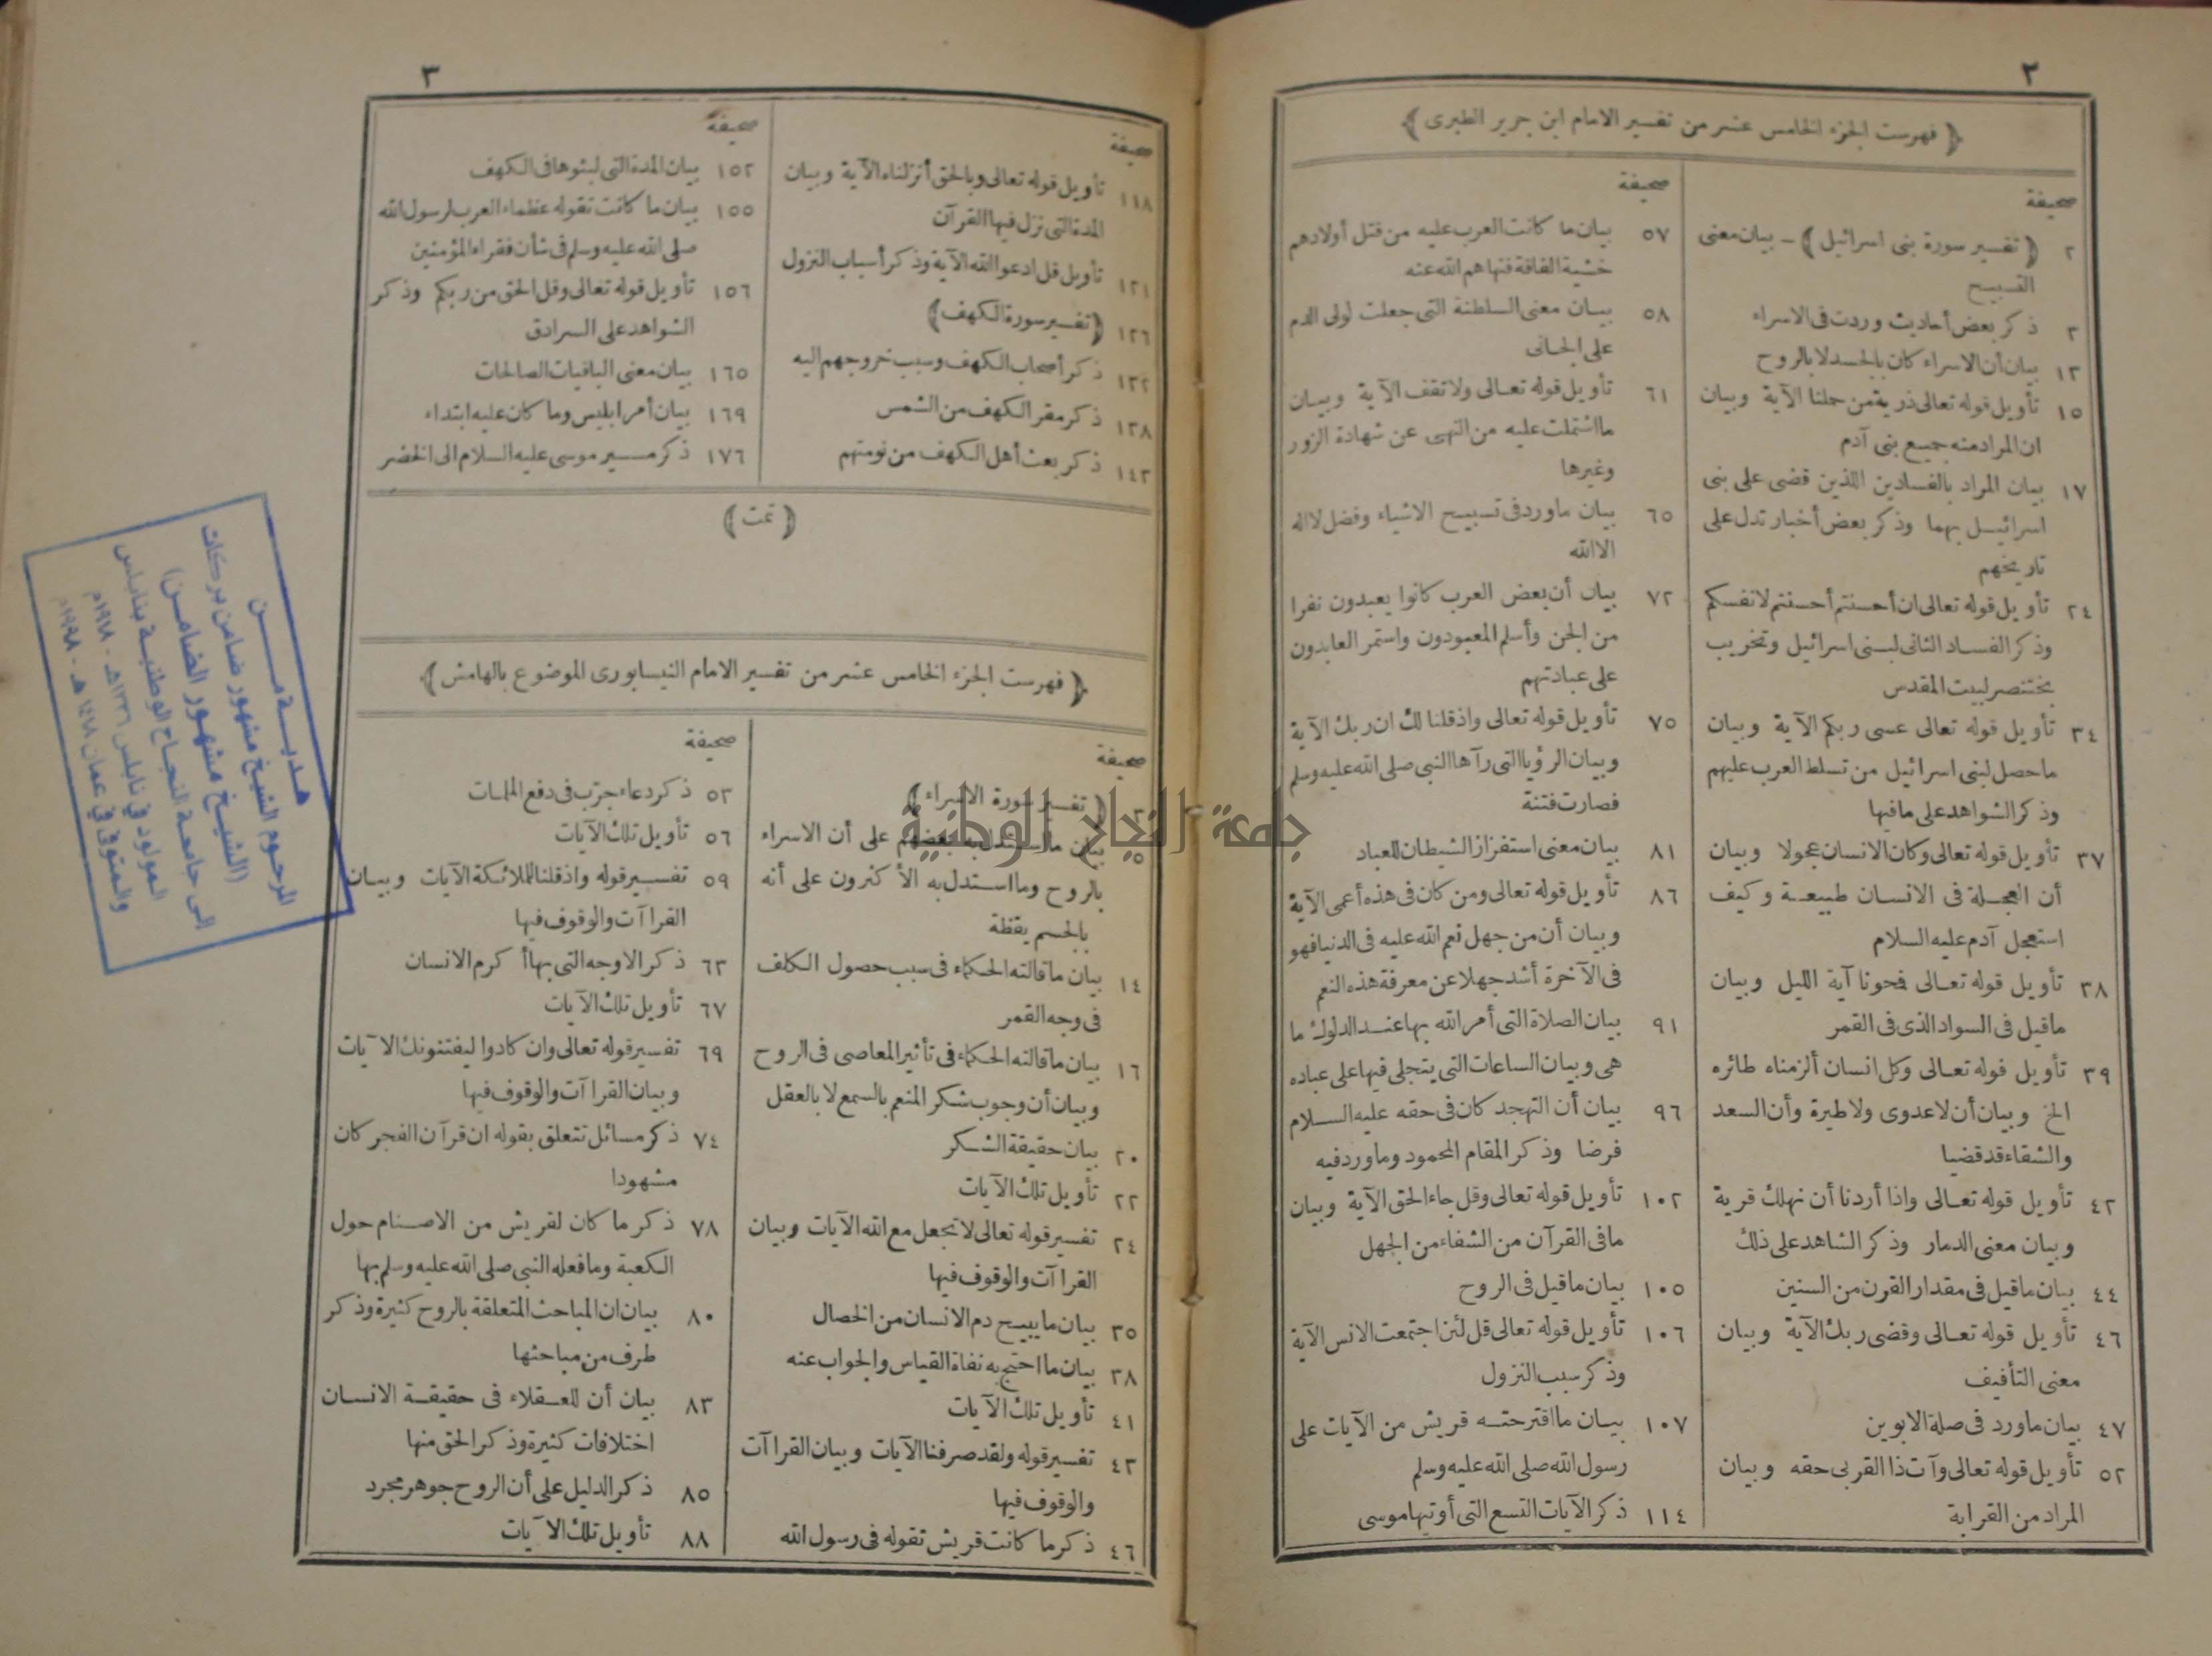 ٢
﴿ فهرست الجزء الخامس عشر من تفسير الامام ابن جرير الطبرى ﴾
صحيفة
٢ ﴿ تفسير سورة بنى اسرائيل ﴾ - بيان معنى
التسبيح
٣ ذكر بعض أحاديث وردت فى الاسراء
١٣ بيان أن الاسراء كان بالجسد لا بالروح
١٥ تأويل قوله تعالى ذرية من حملنا الآية وبيان
ان المراد منه جميع بنى آدم
١٧ بيان المراد بالفسادين اللذين قضى على بنى
اسرائيل بهما وذكر بعض أخبار تدل على
تاريخهم
٢٤ تأويل قوله تعالى ان أحسنتم أحسنتم لانفسكم
وذكر الفساد الثانى لبنى اسرائيل وتخريب
بختنصر لبيت المقدس
٣٤ تأويل قوله تعالى عسى ربكم الآية وبيان
ما حصل لبنى اسرائيل من تسلط العرب عليهم
وذكر الشواهد على ما فيها
٣٧ تأويل قوله تعالى وكان الانسان عجولا وبيان
أن العجلة فى الانسان طبيعة وكيف
استعجل آدم عليه السلام
٣٨ تأويل قوله تعالى فمحونا آية الليل وبيان
ما قيل فى السواد الذى فى القمر
٣٩ تأويل قوله تعالى وكل انسان ألزمناه طائره
الخ وبيان أن لا عدوى ولا طيرة وأن السعد
والشقاء قد قضيا
٤٢ تأويل قوله تعالى واذا أردنا أن نهلك قرية
وبيان معنى الدمار وذكر الشاهد على ذلك
٤٤ بيان ما قيل فى مقدار القرن من السنين
٤٦ تأويل قوله تعالى وقضى ربك الآية وبيان
معنى التأفيف
٤٧ بيان ما ورد فى صلة الابوين
٥٢ تأويل قوله تعالى وآت ذا القربى حقه وبيان
المراد من القرابة
صحيفة
٥٧ بيان ما كانت العرب عليه من قتل أولادهم
خشية الفاقة فنهاهم الله عنه
٥٨ بيان معنى السلطنة التى جعلت لولى الدم
على الجانى
٦١ تأويل قوله تعالى ولا تقف الآية وبيان
ما اشتملت عليه من النهى عن شهادة الزور
وغيرها
٦٥ بيان ما ورد فى تسبيح الاشياء وفضل لا اله
الا الله
٧٢ بيان أن بعض العرب كانوا يعبدون نفرا
من الجن وأسلم المعبودون واستمر العابدون
على عبادتهم
٧٥ تأويل قوله تعالى واذ قلنا لك ان ربك الآية
وبيان الرؤيا التى رآها النبى صلى الله عليه وسلم
فصارت فتنة
٨١ بيان معنى استفزاز الشيطان للعباد
٨٦ تأويل قوله تعالى ومن كان فى هذه أعمى الآية
وبيان أن من جهل نعم الله عليه فى الدنيا فهو
فى الآخرة أشد جهلا عن معرفة هذه النعم
٩١ بيان الصلاة التى أمر الله بها عند الدلوك ما
هى وبيان الساعات التى يتجلى فيها على عباده
٩٦ بيان أن التهجد كان فى حقه عليه السلام
فرضا وذكر المقام المحمود وما ورد فيه
١٠٢ تأويل قوله تعالى وقل جاء الحق الآية وبيان
ما فى القرآن من الشفاء من الجهل
١٠٥ بيان ما قيل فى الروح
١٠٦ تأويل قوله تعالى قل لئن اجتمعت الانس الآية
وذكر سبب النزول
١٠٧ بيان ما اقترحته قريش من الآيات على
رسول الله صلى الله عليه وسلم
١١٤ ذكر الآيات التسع التى أوتيها موسى
٣
صحيفة
١١٨ تأويل قوله تعالى وبالحق أنزلناه الآية وبيان
المدة التى نزل فيها القرآن
١٢١ تأويل قل ادعوا الله الآية وذكر أسباب النزول
١٢٦ ﴿ تفسير سورة الكهف ﴾
١٣٢ ذكر أصحاب الكهف وسبب خروجهم اليه
١٣٨ ذكر مقر الكهف من الشمس
١٤٣ ذكر بعث أهل الكهف من نومتهم
صحيفة
١٥٢ بيان المدة التى لبثوها فى الكهف
١٥٥ بيان ما كانت تقوله عظماء العرب لرسول الله
صلى الله عليه وسلم فى شأن فقراء المؤمنين
١٥٦ تأويل قوله تعالى وقل الحق من ربكم وذكر
الشواهد على السرادق
١٦٥ بيان معنى الباقيات الصالحات
١٦٩ بيان أمر ابليس وما كان عليه ابتداء
١٧٦ ذكر مسير موسى عليه السلام الى الخضر
﴿ تمت ﴾
﴿ فهرست الجزء الخامس عشر من تفسير الامام النيسابورى الموضوع بالهامش ﴾
صحيفة
٣ ﴿ تفسير سورة الاسراء ﴾
٥ بيان ما استدل به بعضهم على أن الاسراء
بالروح وما استدل به الأكثرون على أنه
بالجسم يقظة
١٤ بيان ما قالته الحكماء فى سبب حصول الكلف
فى وجه القمر
١٦ بيان ما قالته الحكماء فى تأثير المعاصى فى الروح
وبيان أن وجوب شكر المنعم بالسمع لا بالعقل
٢٠ بيان حقيقة الشكر
٢٢ تأويل تلك الآيات
٢٤ تفسير قوله تعالى لا تجعل مع الله الآيات وبيان
القراآت والوقوف فيها
٣٥ بيان ما يبيح دم الانسان من الخصال
٣٨ بيان ما احتج به نفاة القياس والجواب عنه
٤١ تأويل تلك الآيات
٤٣ تفسير قوله ولقد صرفنا الآيات وبيان القراآت
والوقوف فيها
٤٦ ذكر ما كانت قريش تقوله فى رسول الله
صحيفة
٥٣ ذكر دعاء جرب فى دفع الملمات
٥٦ تأويل تلك الآيات
٥٩ تفسير قوله واذ قلنا للملائكة الآيات وبيان
القراآت والوقوف فيها
٦٣ ذكر الاوجه التى بها أكرم الانسان
٦٧ تأويل تلك الآيات
٦٩ تفسير قوله تعالى وان كادوا ليفتنونك الآيات
وبيان القراآت والوقوف فيها
٧٤ ذكر مسائل تتعلق بقوله ان قرآن الفجر كان
مشهودا
٧٨ ذكر ما كان لقريش من الاصنام حول
الكعبة وما فعله النبى صلى الله عليه وسلم بها
٨٠ بيان ان المباحث المتعلقة بالروح كثيرة وذكر
طرف من مباحثها
٨٣ بيان أن للعقلاء فى حقيقة الانسان
اختلافات كثيرة وذكر الحق منها
٨٥ ذكر الدليل على أن الروح جوهر مجرد
٨٨ تأويل تلك الآيات
هدية من
المرحوم الشيخ مشهور ضامن بركات
(الشيخ مشهور الضامن)
الى جامعة النجاح الوطنية بنابلس
المولود في نابلس ١٣٣٦هـ - ١٩١٨م
والمتوفى في عمان ١٤١٨ هـ - ١٩٩٨م
جامعة النجاح الوطنية